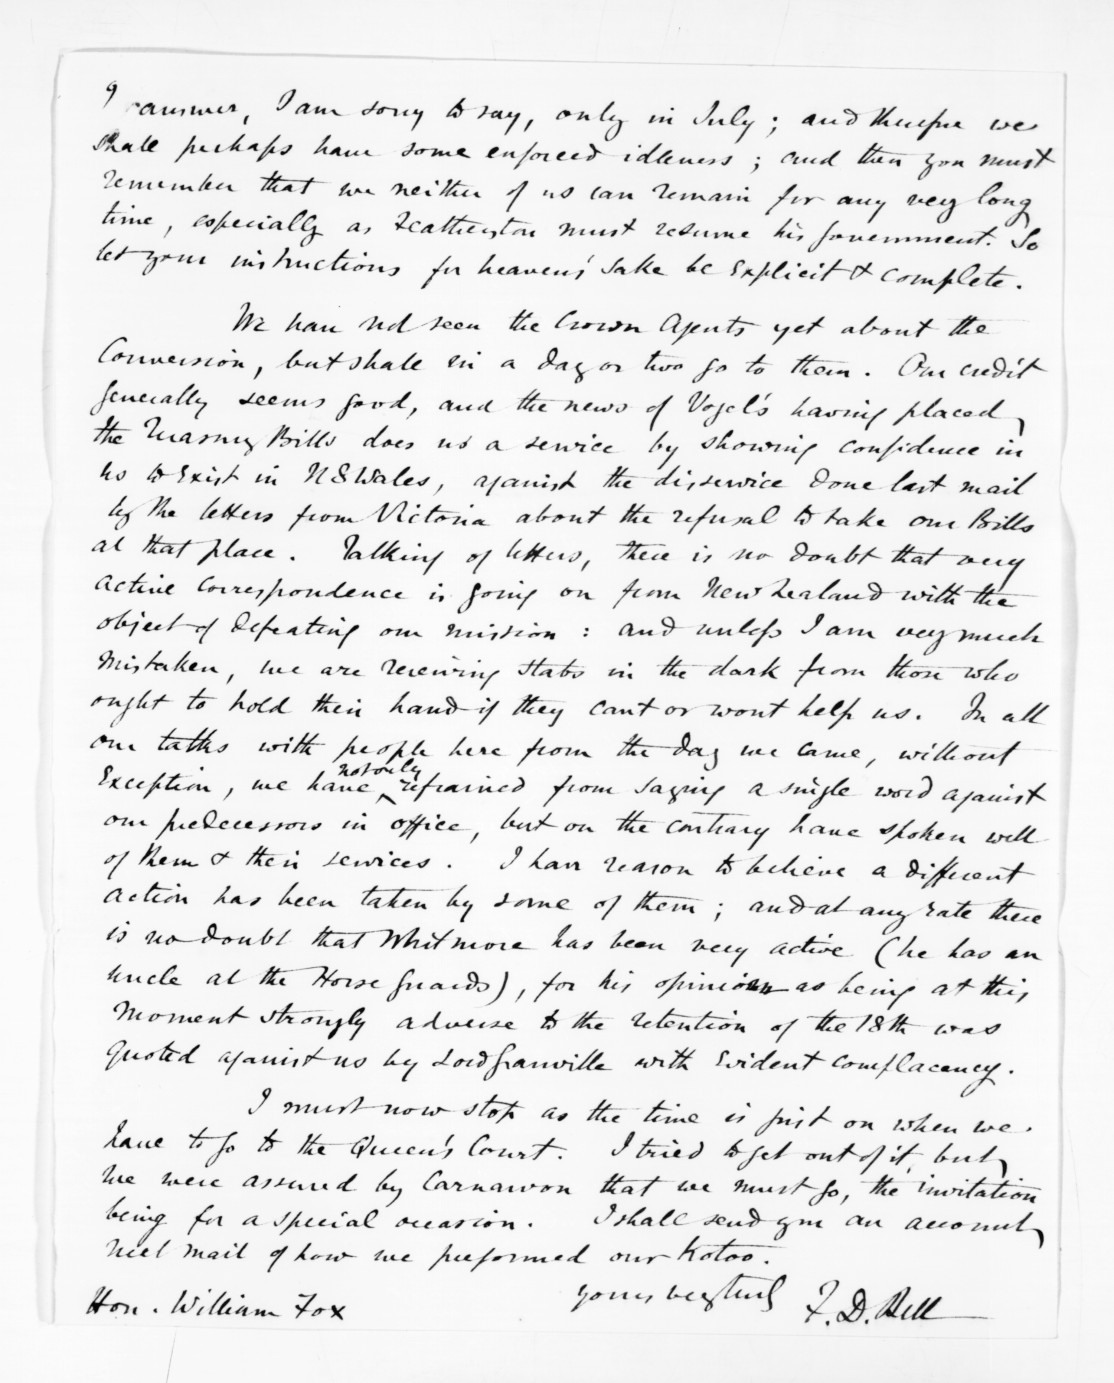 answer, I am sorry to say, only in July; and therefore we
shall perhaps have some enforced idleness; and then you must
remember that we neither of us can remain for any very long
time, especially as Featherston must resume his Government. So
let your instructions for heavens' sake be explicit & complete.
We have not seen the Crown Agents yet about the
Conversion, but shall in a day or two go to them. Our credit
generally seems good, and the news of Vogel's having placed
the Treasury Bills does us a service by showing confidence in
us to exist in N S Wales, against the disservice done last mail
by the letters from Victoria about the refusal to take our Bills
at that place. Talking of letters, there is no doubt that very
active correspondence is going on from New Zealand with the
object of defeating our mission: and unless I am very much
mistaken, we are receiving stabs in the dark from those who
ought to hold their hand if they cant or wont help us. In all
our talks with people here from the day we came, without
exception, we have not only refrained from saying a single word against
our predecessors in office, but on the contrary have spoken well
of them & their services. I have reason to believe a different
action has been taken by some of them; and at any rate there
is no doubt that Whitmore has been very active (he has an
uncle at the Horse Guards), for his opinion as being at this
moment strongly adverse to the retention of the 18th was
quoted against us by Lord Granville with evident complacency.
I must now stop as the time is just on when we
have to go to the Queen's Court. I tried to get out of it, but
we were assured by Carnarvon that we must go, the invitation
being for a special occasion. I shall send you an account
next mail of how we preformed our Kotoo.
yours very truly
F. D. Bell
Hon. William Fox